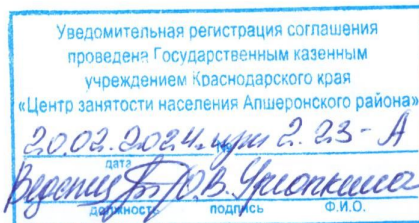 Уведомительная регистрация соглашения
проведена Государственным казенным
учреждением Краснодарского края
«Центр занятости населения Апшеронского района»
20.02.2024 № 2.23-А
дата
Ю.В.
должность подпись Ф.И.О.